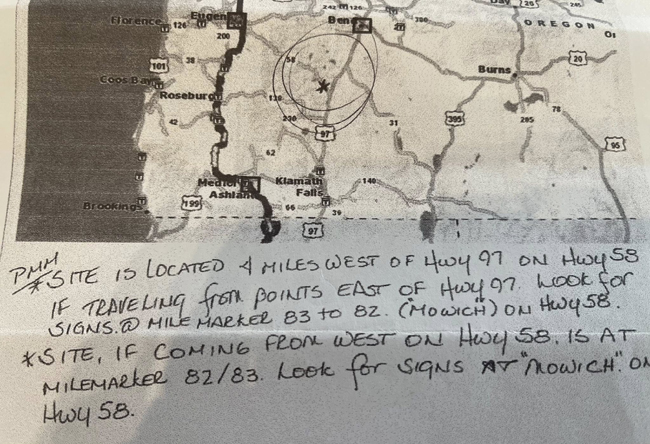 242 126
Day 20
Florence 126 Eugen Ben 380
OREGON
200
101 38 58 Burns 20
Coos Bay
Roseburg 138
42 230 97 31 395 205 78
95
62
Medfor Klamath 140
Ashland Falls
Brookings 199 66 39
97
PMM
*SITE IS LOCATED 4 MILES WEST OF Hwy 97 ON Hwy 58
IF TRAVELING from POINTS EAST OF Hwy 97. Look for
SIGNS @ MILE MARKER 83 TO 82. ("MOWICH") ON Hwy 58.
*SITE, IF COMING FROM WEST ON Hwy 58. IS AT
MILEMARKER 82/83. Look for SIGNS AT "MOWICH". ON
Hwy 58.